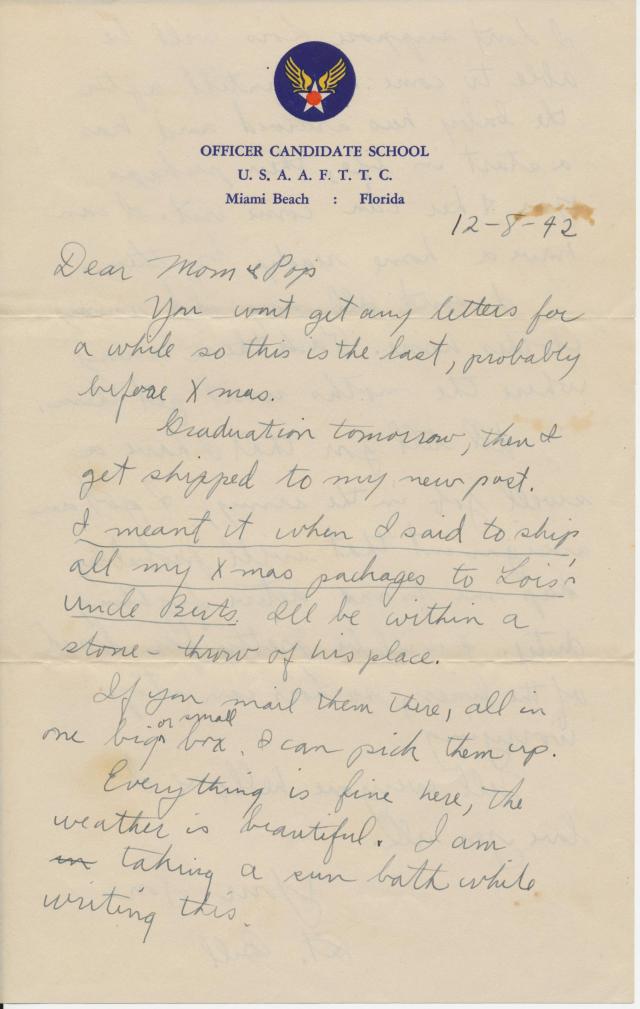 OFFICER CANDIDATE SCHOOL
U. S. A. A. F. T. T. C.
Miami Beach : Florida
12-8-42
Dear Mom & Pop
You wont get any letters for
a while so this is the last, probably
before Xmas.
Graduation tomorrow, then I
get shipped to my new post.
I meant it when I said to ship
all my Xmas packages to Lois'
Uncle Berts. I'll be within a
stone-throw of his place.
If you mail them there, all in
one big or small box. I can pick them up.
Everything is fine here, the
weather is beautiful. I am
in taking a sun bath while
writing this.